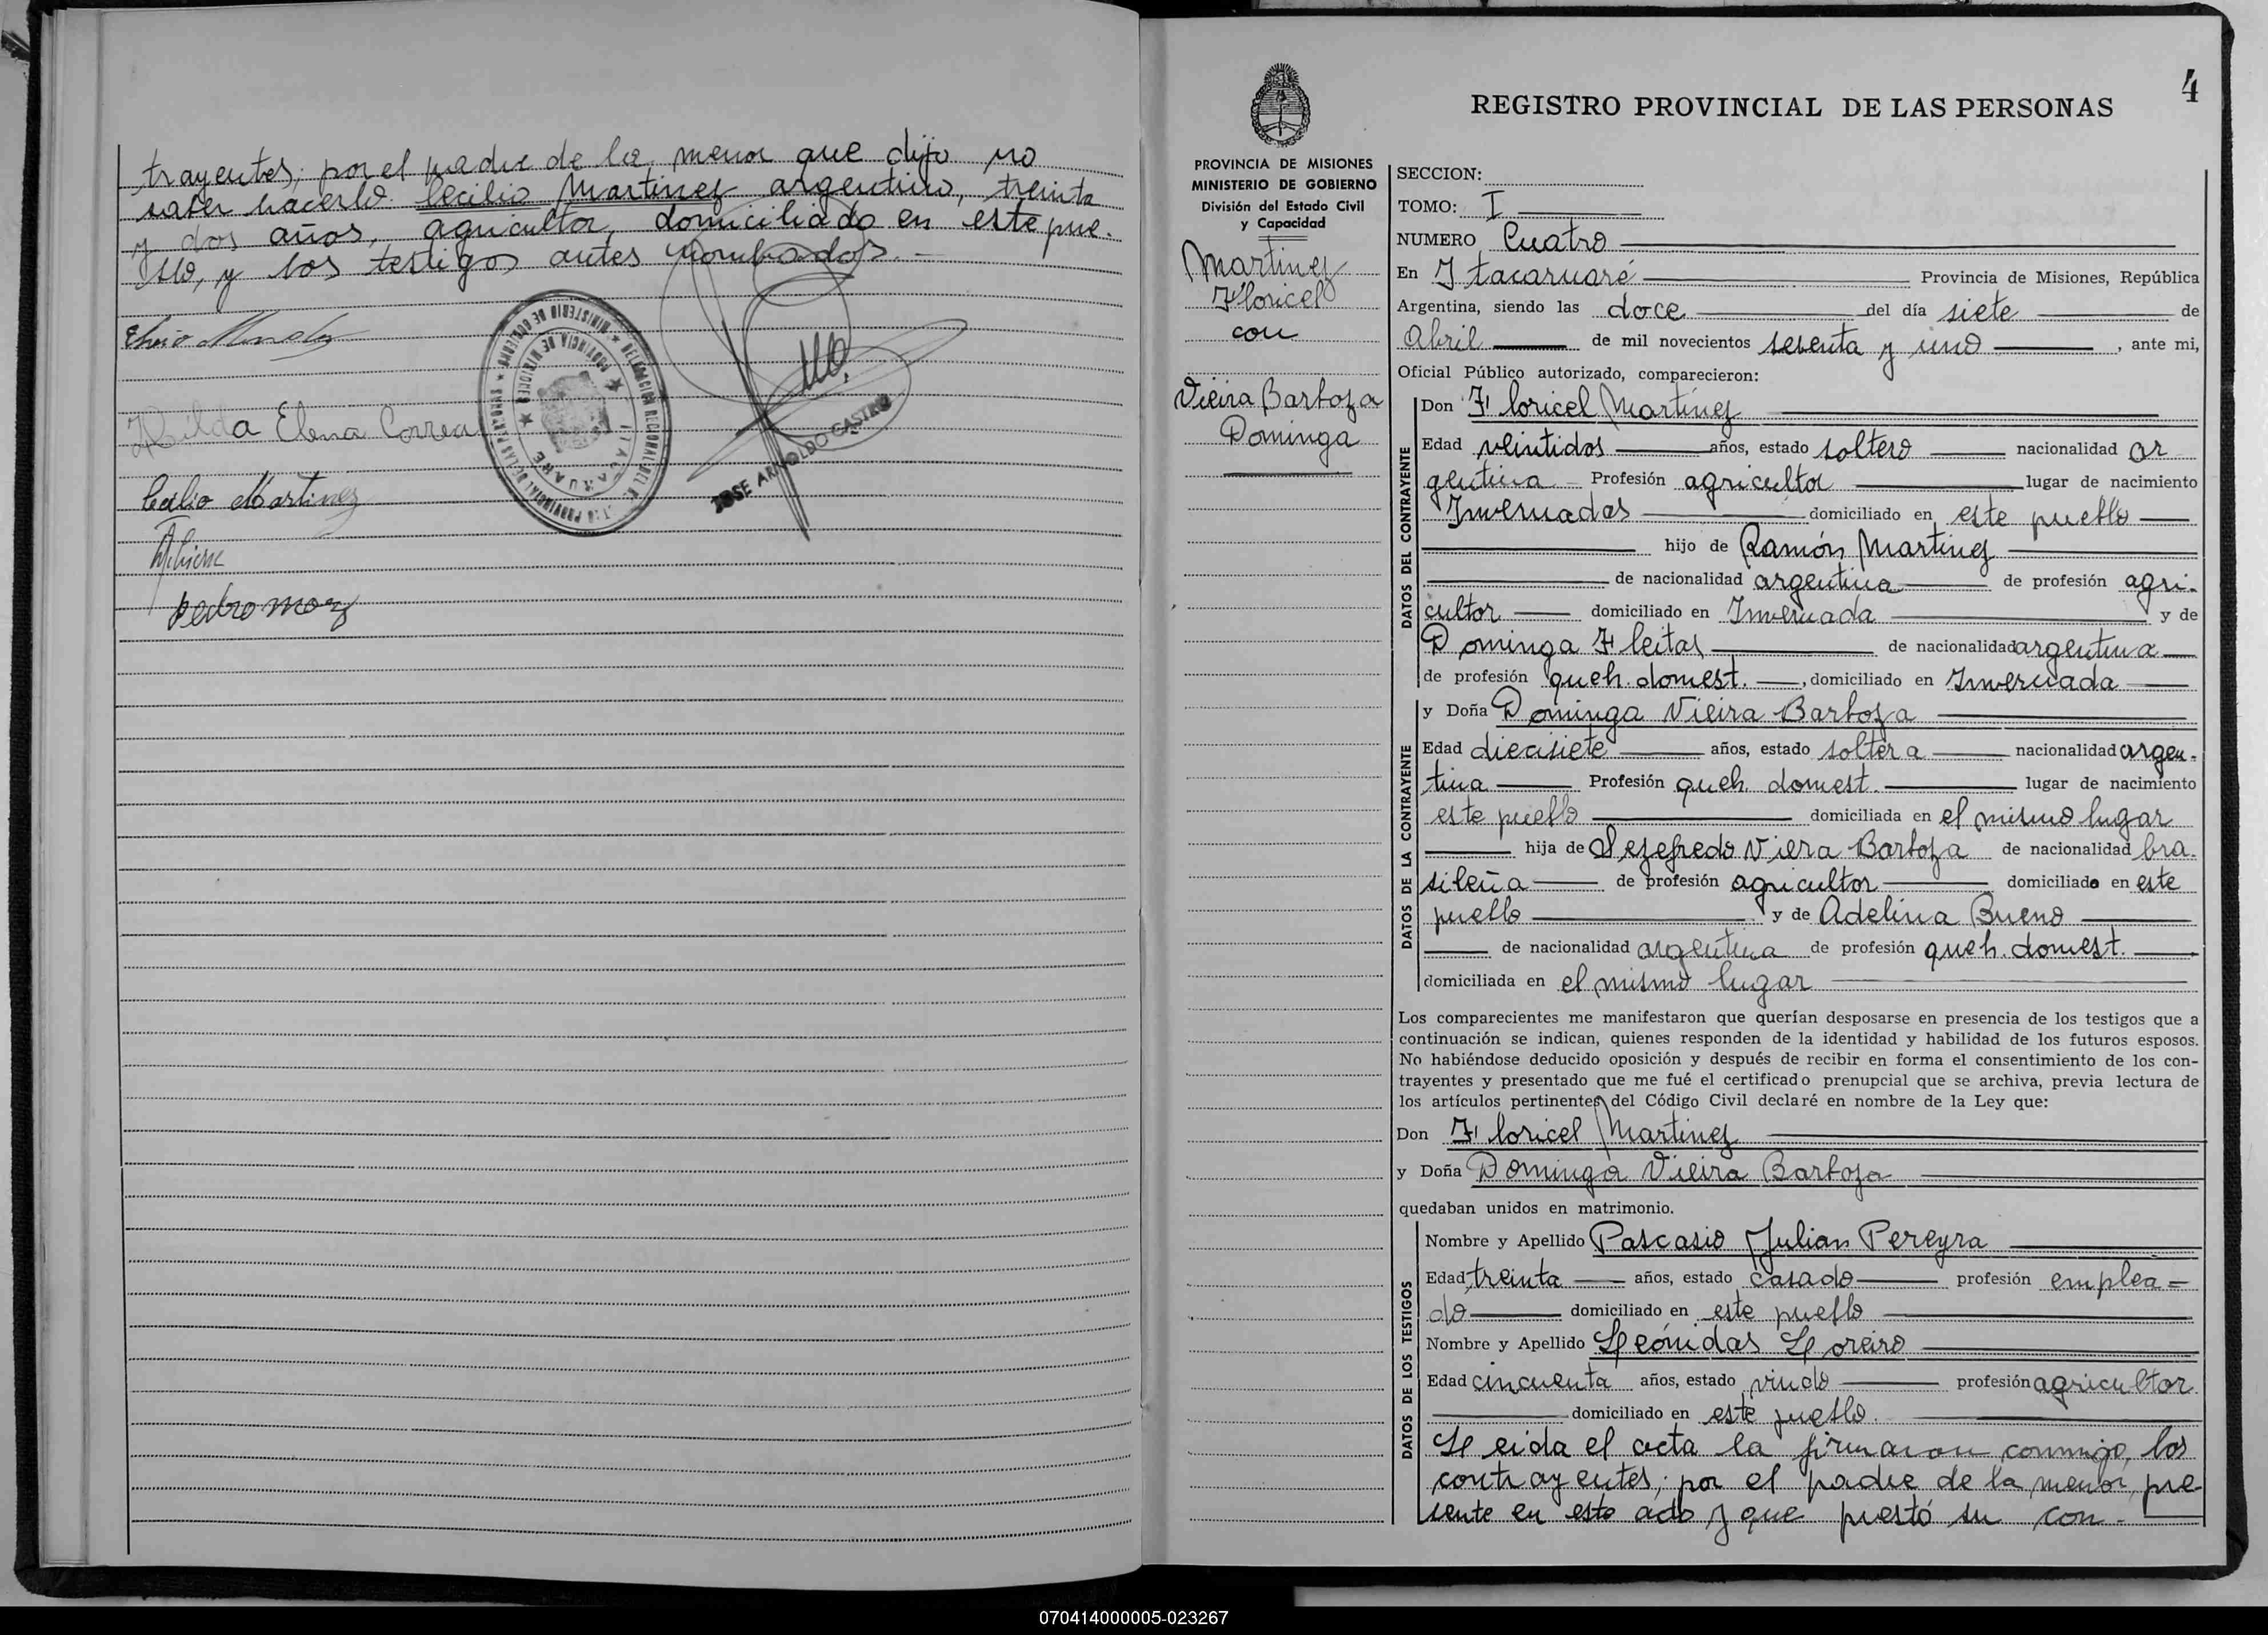 trayentes; por el padre de la menor que dijo no
saber hacerlo. Cecilio Martinez argentino, treinta
y dos años, agricultor, domiciliado en este pue-
blo, y los testigos antes nombrados. -
Hilda Elena Correa
Celio Martinez
pedro moz
JOSE ARNOLDO CASTRO
ITACARUARE
4
REGISTRO PROVINCIAL DE LAS PERSONAS
PROVINCIA DE MISIONES
MINISTERIO DE GOBIERNO
División del Estado Civil
y Capacidad
Martinez
Floricel
con
Vieira Barboza
Dominga
SECCION:
TOMO: I
NUMERO Cuatro
En Itacaruaré Provincia de Misiones, República
Argentina, siendo las doce del día siete de
Abril de mil novecientos setenta y uno, ante mi,
Oficial Público autorizado, comparecieron:
DATOS DEL CONTRAYENTE
Don Floricel Martinez
Edad veintidos años, estado soltero nacionalidad ar
gentina Profesión agricultor lugar de nacimiento
Invernadas domiciliado en este pueblo
hijo de Ramón Martinez
de nacionalidad argentina de profesión agri-
cultor domiciliado en Invernada y de
Dominga Fleitas de nacionalidad argentina
de profesión queh. domest., domiciliado en Invernada
DATOS DE LA CONTRAYENTE
y Doña Dominga Vieira Barboza
Edad diecisiete años, estado soltera nacionalidad argen-
tina Profesión queh. domest. lugar de nacimiento
este pueblo domiciliada en el mismo lugar
hija de Sezefredo Viera Barboza de nacionalidad bra-
sileña de profesión agricultor domiciliado en este
pueblo y de Adelina Bueno
de nacionalidad argentina de profesión queh. domest.
domiciliada en el mismo lugar
Los comparecientes me manifestaron que querían desposarse en presencia de los testigos que a
continuación se indican, quienes responden de la identidad y habilidad de los futuros esposos.
No habiéndose deducido oposición y después de recibir en forma el consentimiento de los con-
trayentes y presentado que me fué el certificado prenupcial que se archiva, previa lectura de
los artículos pertinentes del Código Civil declaré en nombre de la Ley que:
Don Floricel Martinez
y Doña Dominga Vieira Barboza
quedaban unidos en matrimonio.
DATOS DE LOS TESTIGOS
Nombre y Apellido Pascasio Julian Pereyra
Edad treinta años, estado casado profesión emplea=
do domiciliado en este pueblo
Nombre y Apellido Leónidas Loreiro
Edad cincuenta años, estado viudo profesión agricultor
domiciliado en este pueblo.
Leida el acta la firmaron conmigo, los
contrayentes; por el padre de la menor, pre-
sente en este acto y que prestó su con-
070414000005-023267